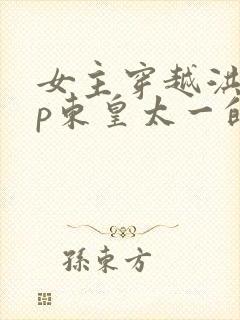 女主穿越洪
p东皇太一的
孫東方